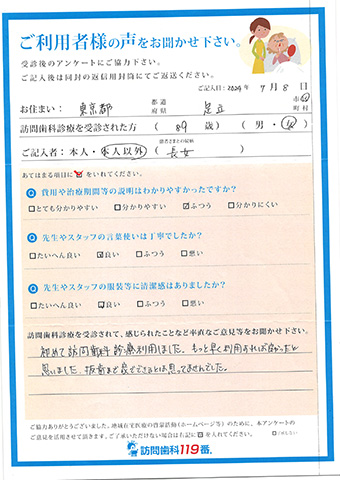 ご利用者様の声をお聞かせ下さい。
受診後のアンケートにご協力下さい。
ご記入後は同封の返信用封筒にてご返送ください。
ご記入日:2024年7月8日
お住まい: 東京都 都道府県 足立 市区町村
訪問歯科診療を受診された方 (89歳) (男・女)
ご記入者:本人・本人以外 (患者さまとの続柄 長女)
あてはまる項目に☑をいれてください。
Q 費用や治療期間等の説明はわかりやすかったですか?
□とても分かりやすい □分かりやすい ☑ふつう □分かりにくい
Q 先生やスタッフの言葉使いは丁寧でしたか?
□たいへん良い ☑良い □ふつう □悪い
Q 先生やスタッフの服装等に清潔感はありましたか?
□たいへん良い ☑良い □ふつう □悪い
訪問歯科診療を受診されて、感じられたことなど率直なご意見等をお聞かせ下さい。
初めて訪問歯科診療利用しました。もっと早く利用すれば良かったと
思いました。抜歯まで家でできるとは思ってませんでした。
ご協力ありがとうございました。地域在宅医療の啓蒙活動(ホームページ等)のために、本アンケートの
ご意見を活用させて頂きます。ご了承いただけない場合は右記に☑を入れてください。
訪問歯科119番®